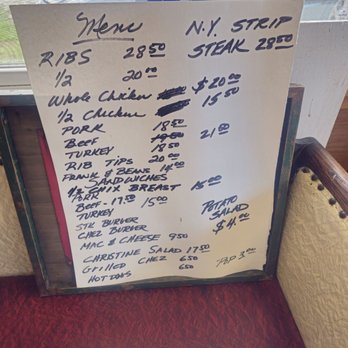 Menu
N.Y. STRIP
STEAK 28 50
RIBS 28 50
1/2 20 00
Whole Chicken $20 00
1/2 Chicken 15 50
PORK 18 50
Beef 21 00
TURKEY 18 50
RIB TIPS 20 00
FRANK & BEANS 14 00
SANDWICHES
1/2 CHIX BREAST 15 00
PORK
BEEF - 17 50 15 00
TURKEY
STK BURGER
CHEZ BURGER
MAC & CHEESE 9 50
POTATO
SALAD
$4 00
CHRISTINE SALAD 17 50
Grilled CHEZ 6 50
HOT DOGS 6 50
POP 3 00